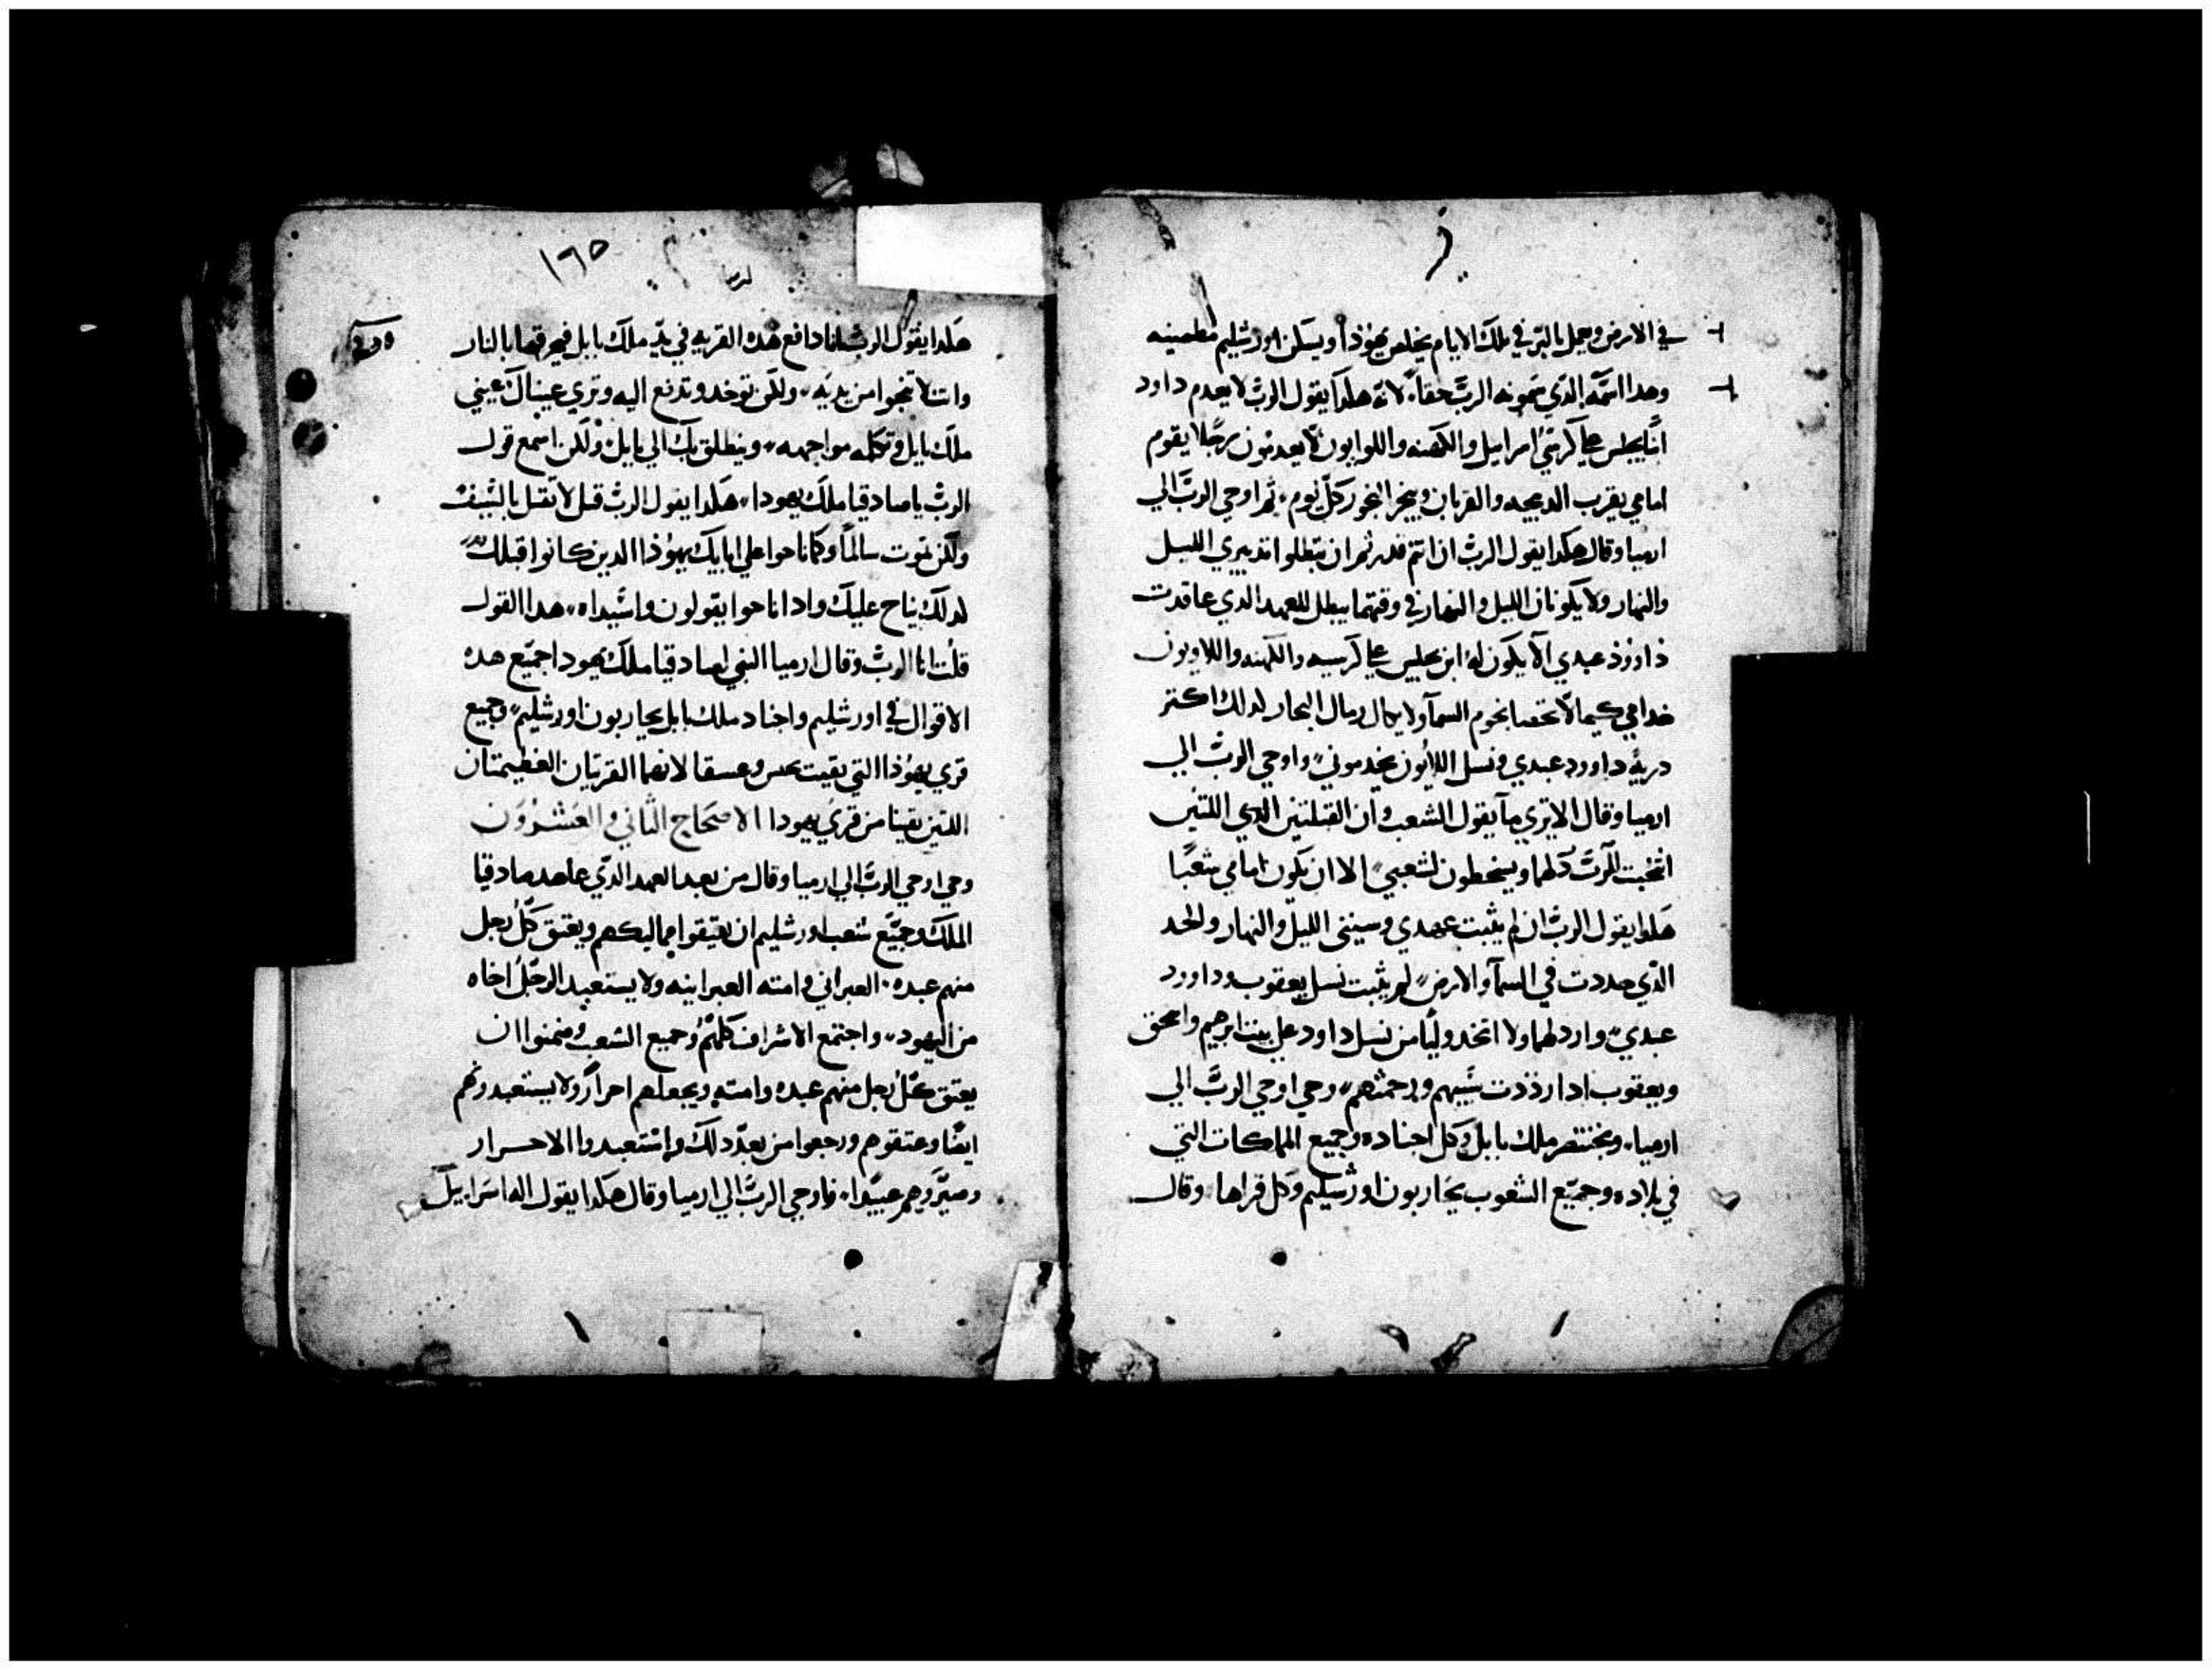 في الارض ويعمل بالبر في تلك الايام يخلص يهوذا ويسكن اورشليم مطمينه
وهدا اسمه الدي يسمونه الرب حقا، لانه هكدا يقول الرب لا يعدم داود
ابنا يجلس علي كرسي اسراييل والكهنه واللوايون لا يعدمون رجلا يقوم
امامي يقرب الدبيحه والقربان ويبخر البخور كل يوم، ثم اوحي الرب الي
ارميا وقال هكدا يقول الرب ان انتم قدرتم ان تبطلوا تدبيري الليل
والنهار ولا يكونان الليل والنهار في وقتهما يبطل للعهد الدي عاقدت
داوود عبدي الا يكون له ابن يجلس علي كرسيه والكهنه واللاويون
خدامي كيما لا تحصا نجوم السما ولا يكال رمال البحار لدلك اكتر
درية داوود عبدي ونسل اللايون يخدموني، واوحي الرب الي
ارميا وقال الا تري ما يقول الشعب وان القبلتين اللتين
انتخبت الرب كلهما ويسخطون لشعبي، الا ان يكون امامي شعبا
هكدا يقول الرب ان لم يثبت عهدي وسيني الليل والنهار والحد
الدي حددت في السما والارض، لم يثبت نسل يعقوب وداوود
عبدي، وارذلهما ولا اتخد وليا من نسل داود علي بيت ابرهيم واسحق
ويعقوب ادا رددت سبيهم ورحمتهم، وحي اوحي الرب الي
ارميا، وبختنصر ملك بابل وكل اجناده وجميع المملكات التي
في بلاده وجميع الشعوب يحاربون اورشليم وكل قراها وقال
١٦٥
هكدا يقول الرب انا دافع هده القريه في يد ملك بابل فيحرقها بالنار
وانت لا تنجوا من يديه، ولكن توخد وتدفع اليه وتري عيناك عيني
ملك بابل وتكلمه مواجهه، وينطلق بك الي بابل، ولكن اسمع قول
الرب يا صادقيا ملك يهودا، هكدا يقول الرب قبل لا تقتل بالسيف
ولكن تموت سالما وكما ناحوا علي ابايك يهوذا الدين كانوا قبلك
لدلك يناح عليك وادا ناحوا يقولون واسيداه، هدا القول
قلت انا الرب وقال ارميا النبي لصادقيا ملك يهودا جميع هده
الاقوال في اورشليم واجناد ملك بابل يحاربون اورشليم، وجميع
قري يهوذا التي بقيت وعسقا لانهما القريتان العظيمتان
اللتين بقيتا من قري يهودا الاصحاح الثاني والعشرون
وحي اوحي الرب الي ارميا وقال من بعد العهد الدي عاهد صادقيا
الملك وجميع شعب اورشليم ان يعتقوا مماليكهم ويعتق كل رجل
منهم عبده العبراني وامته العبرانيه ولا يستعبد الرجل اخاه
من اليهود، واجتمع الاشراف كلهم وجميع الشعب وضمنوا ان
يعتق كل رجل منهم عبده وامته ويجعلهم احرارا ولا يستعبدونهم
ايضا وعتقوهم ورجعوا من بعد دلك واستعبدوا الاحرار
وصيروهم عبيدا، فاوحي الرب الي ارميا وقال هكدا يقول اله اسراييل